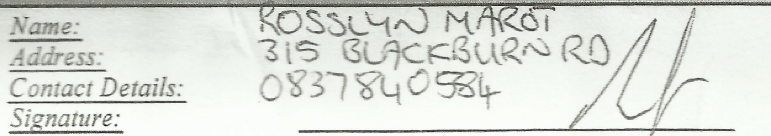 Name: ROSSLYN MAROT
Address: 315 BLACKBURN RD
Contact Details: 0837840584
Signature: